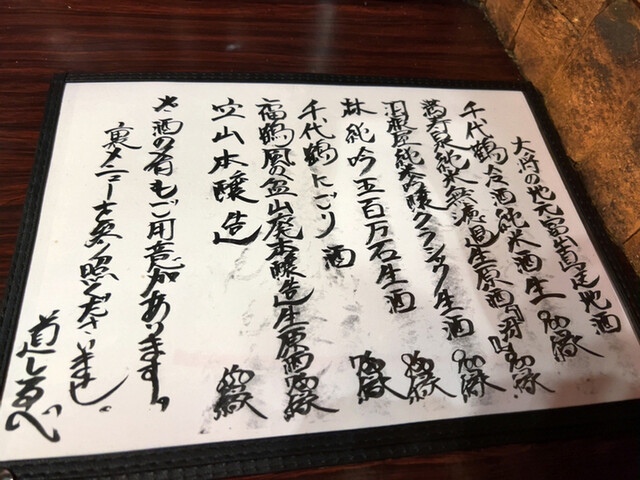 大将の地元富山県産地酒
千代鶴 会酒純米酒生 縁
満寿泉純米無濾過生原酒 縁
羽根屋純米吟醸クラシック生酒 縁
林 純吟 五百万石生酒 縁
千代鶴 にごり酒
福鶴 風の盆山廃本醸造生原酒 縁
立山本醸造 縁
お酒の肴もご用意が有ります。
裏メニューを参照くださいませ。
道しるべ